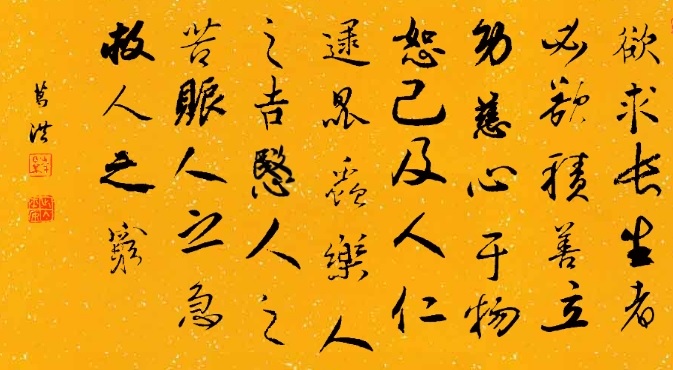 欲求长生者
必欲積善立
功慈心于物
恕己及人仁
逮昆蟲樂人
之吉愍人之
苦賑人之急
救人之窮
葛洪